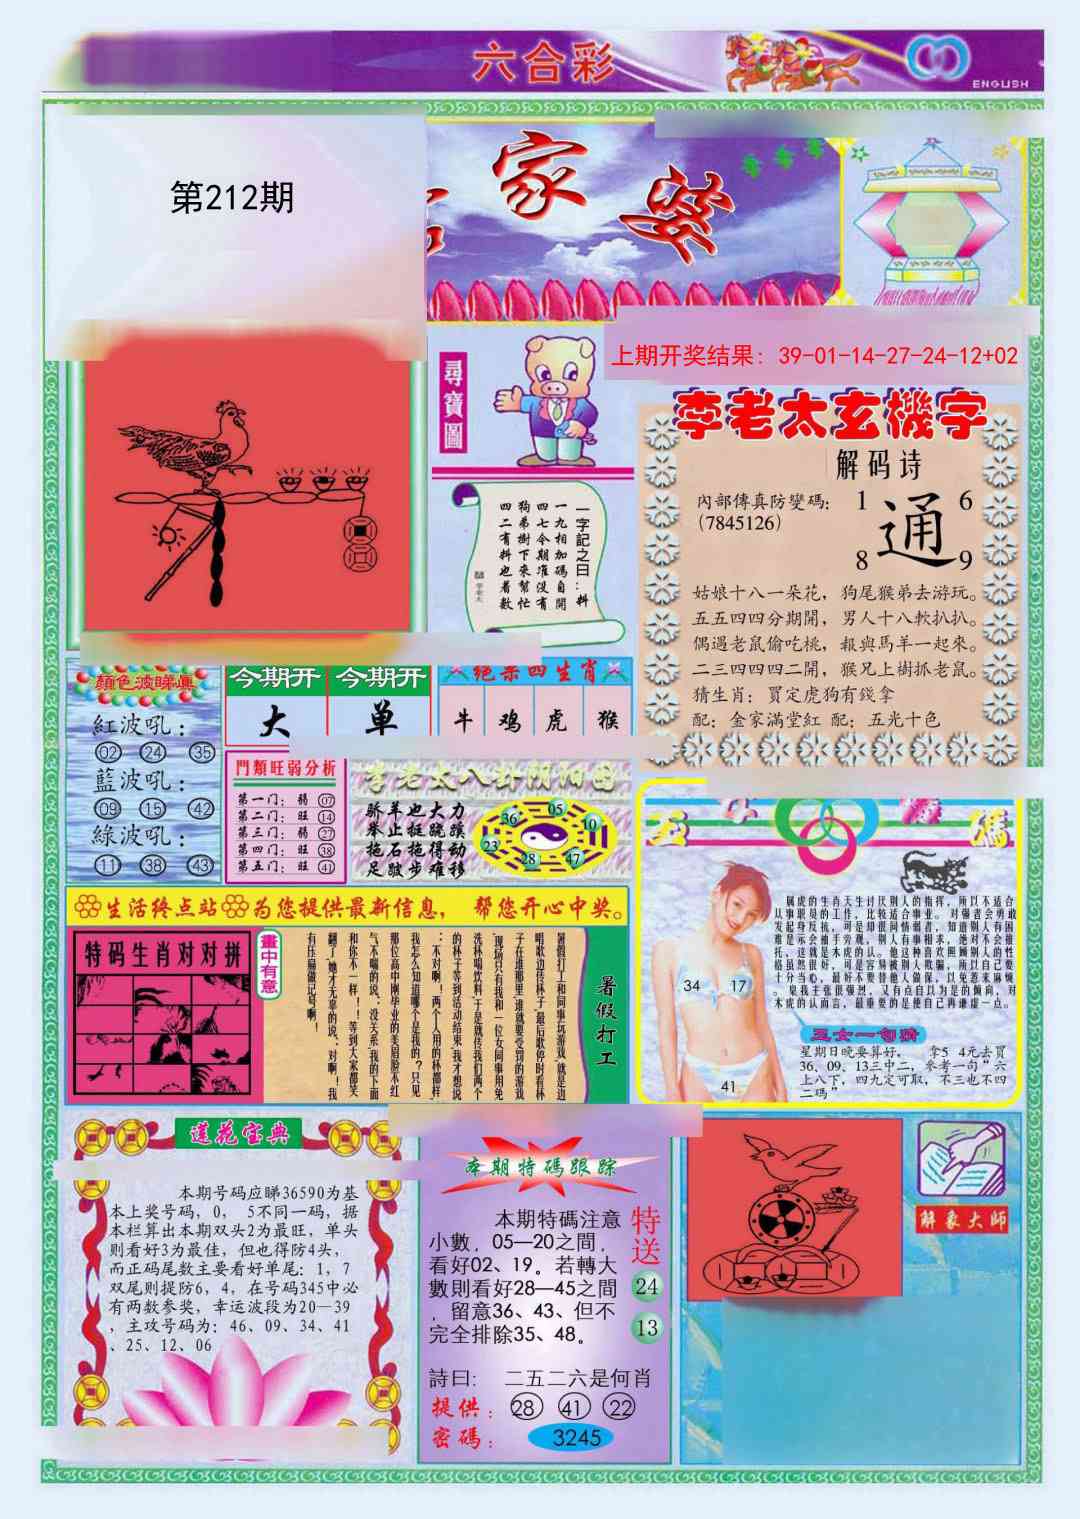 六合彩
ENGLISH
第212期
家婆
上期开奖结果：39-01-14-27-24-12+02
尋寶圖
一字記之曰：料
一九相加碼自開
四七今期准没有
狗弟樹下來幫忙
四二有料也着數
李老太玄機字
解码诗
內部傳真防變碼：
(7845126)
1 6
通
8 9
姑娘十八一朵花，狗尾猴弟去游玩。
五五四四分期開，男人十八軟扒扒。
偶遇老鼠偷吃桃，報與馬羊一起來。
二三四四四二開，猴兄上樹抓老鼠。
猜生肖：買定虎狗有錢拿
配：金家滿堂紅 配：五光十色
顏色波睇真
紅波吼：
02 24 35
藍波吼：
09 15 42
綠波吼：
11 38 43
今期开 今期开
大 单
绝杀四生肖
牛 鸡 虎 猴
門類旺弱分析
第一门：弱 07
第二门：旺 14
第三门：弱 27
第四门：旺 38
第五门：旺 41
李老太八卦阴阳图
骄羊也大力
举止挺跷蹊
拖石拖得动
足跛步难移
36 05 10 23 28 47
生活终点站 为您提供最新信息， 帮您开心中奖。
特码生肖对对拼
畫中有意
暑假打工
暑假打工和同事玩游戏，就是边
唱歌边传杯子，最后歌停时看杯
子在谁那里，谁就要受罚的游戏
，现场只有我和一位女同事用免
洗杯喝饮料，于是就传我们两个
的杯子，等到活动结束，我才想说
：不对啊！两个人用的杯都一样，
我怎么知道哪个是我的？只见
那位高中刚毕业的美眉脸不红
气不喘的说：没关系，我的下面
和你不一样！！等到大家都笑
翻了，她才无辜的说：对啊！我
有在杯底做记号啊！
五 碼
属虎的生肖天生讨厌别人的指挥，所以不适合
从事职员的工作，比较适合事业。对强者会勇敢
发起身反抗，可是却很同情弱者，知道别人有困
难是示会袖手旁观，别人有事相求，绝对不会推
托，这就是木虎的认。他这种喜欢照顾别人的性
格虽然很好，可是容易被别人欺骗，所以自己要
十分当心，最好不要替他人做保，以免惹来麻烦
。果我主张很强烈，又有点自以为是的倾向，对
木虎的认而言，最重要的是使自己再谦虚一点。
34 17
41
三女一句猜
星期日晚要算好， 拿5 4元去買
36、09、13三中二，參考一句“六
上八下，四九定可取，不三也不四
二碼”
莲花宝典
本期号码应睇36590为基
本上奖号码，0， 5不同一码，据
本栏算出本期双头2为最旺，单头
则看好3为最佳，但也得防4头，
而正码尾数主要看好单尾：1，7
双尾则提防6，4，在号码345中必
有两数参奖，幸运波段为20—39
，主攻号码为：46、09、34、41
、25、12、06
本期特碼跟踪
本期特碼注意
小數，05—20之間，
看好02、19。若轉大
數則看好28—45之間
，留意36、43、但不
完全排除35、48。
特送
24
13
詩曰： 二五二六是何肖
提供：28 41 22
密碼： 3245
解象大师